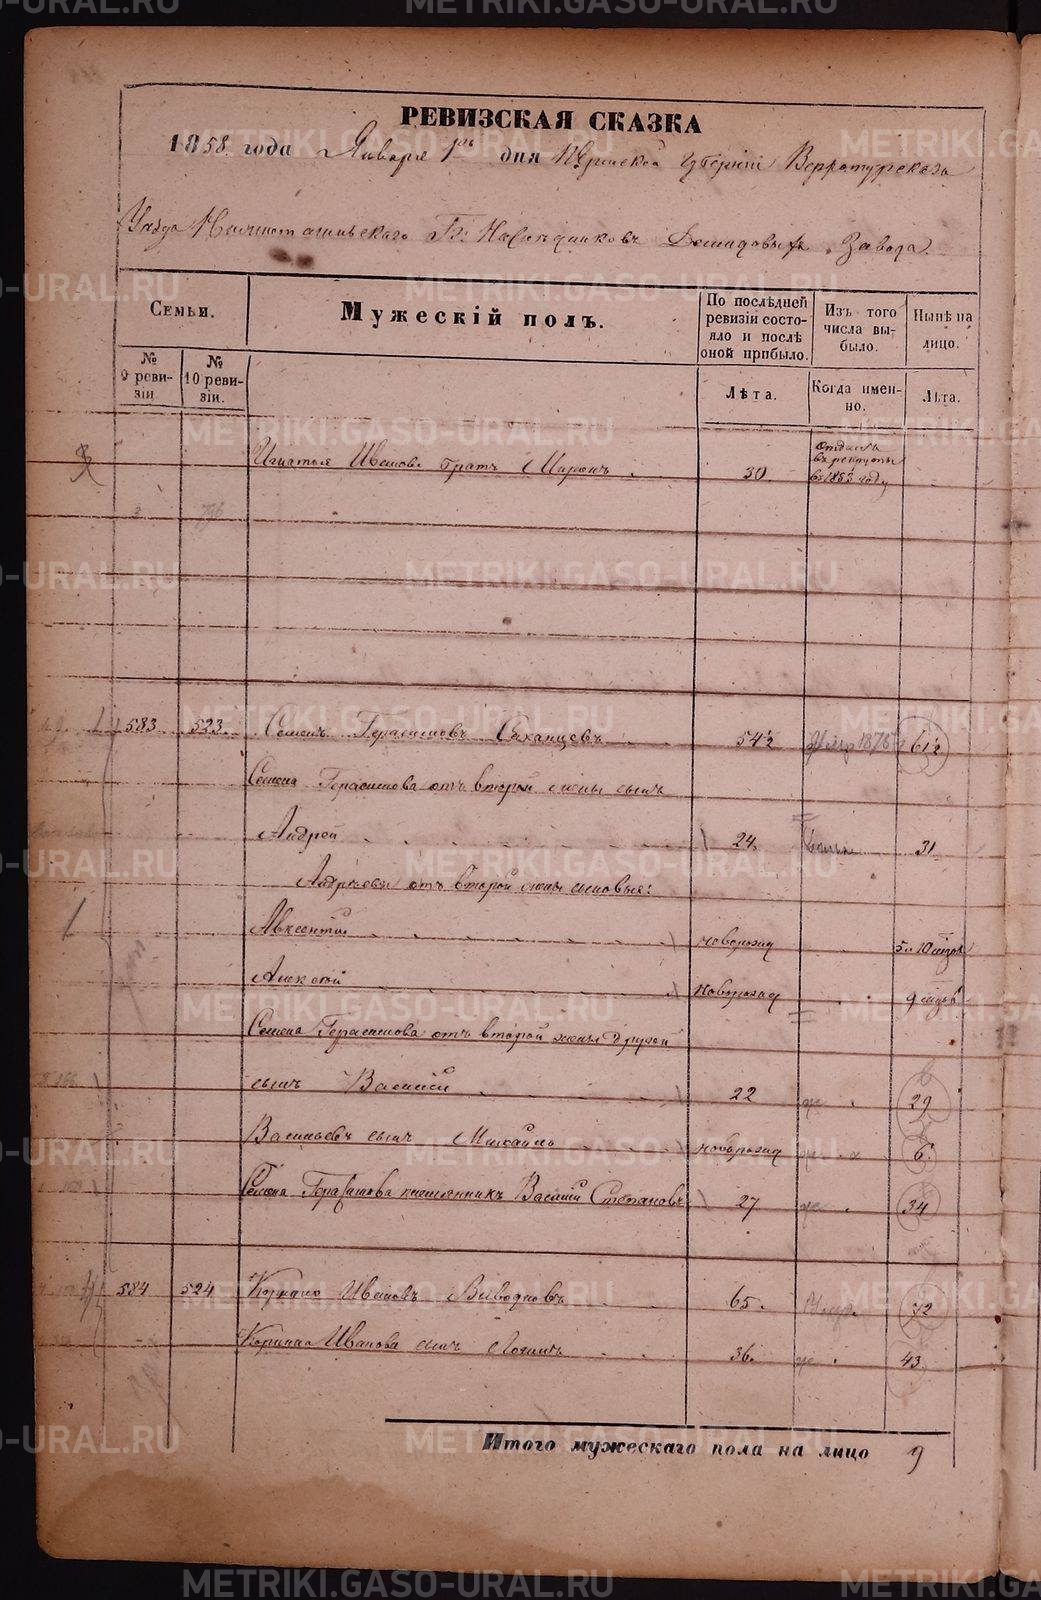 РЕВИЗСКАЯ СКАЗКА
1858 года Января 1го дня Пермской губернии Верхотурскаго
Уѣзда Нижнетагильскаго Гг. Наслѣдниковъ Демидовыхъ Завода.
Семьи.
Мужескій полъ.
По послѣдней ревизіи состояло и послѣ оной прибыло.
Изъ того числа выбыло.
Нынѣ на лицо.
№ 9 ревизіи
№ 10 ревизіи.
Лѣта.
Когда именно.
Лѣта.
Игнатья Иванова братъ Миронъ 30 Отданъ въ рекруты въ 1853 году
583 523. Семенъ Герасимовъ 54½ 61½
Семена Герасимова отъ второй жены сынъ
Андрей 24. 31
Андреевы отъ второй жены сыновья:
Авксентий новорожд 5 и 10 мѣсяц
Алексѣй новорожд 9 мѣсяц
Семена Герасимова отъ второй жены другой
сынъ Василий 22 29
Васильевъ сынъ Михайло новорожд 6.
Семена Герасимова племянникъ Василий Степановъ 27 34
584 524 Корнило Ивановъ 65. 72
Корнила Иванова сынъ Логинъ 36. 43
Итого мужескаго пола на лицо 9
METRIKI.GASO-URAL.RU